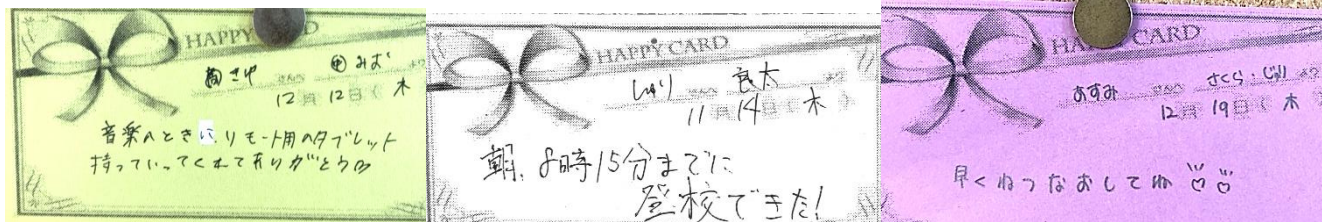 HAPPY CARD
さゆ さんへ みお より
12月12日(木)
音楽のときに、リモート用のタブレット
持っていってくれてありがとう
HAPPY CARD
しゅり さんへ 良太 より
11月14日(木)
朝、8時15分までに
登校できた!
HAPPY CARD
あすみ さんへ さくら・じゅり より
12月19日(木)
早くねつなおしてね